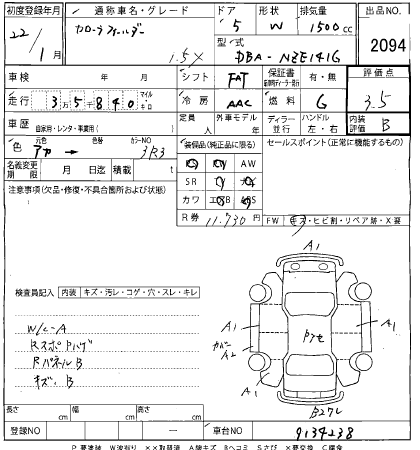 初度登録年月 通称車名・グレード ドア 形状 排気量 出品NO.
22/1月 カローラフィールダー 1.5X 5 W 1500cc 2094
型式 DBA-NZE141G
車検 年 月 シフト FAT 保証書 有・無 評価点
走行 35840 マイル キロ 冷房 AAC 燃料 G 3.5
車歴 自家用・レンタ・事業用( ) 定員 人 外車モデル ディラー 並行 ハンドル 左・右 内装評価 B
色 元色 アカ → 色替 カラーNO 3R3 装備品(純正品に限る) セールスポイント(正常に機能するもの)
名義変更期限 月 日迄 積載 t AW
SR
注意事項(欠品・修復・不具合箇所および状態) カワ ABS
R券 11,730円 FW キズ・ヒビ割・リペア跡・X要
検査員記入 内装 キズ・汚レ・コゲ・穴・スレ・キレ
W/C-A
RスポPハゲ
RパネルB
キズ・B
A1
A1
カバー
A2
A1
A1
B27レ
長さ cm 幅 cm 高さ cm
登録NO ー 車台NO 9134238
P 要塗装 W波打り ××取替済 A線キズ Bヘコミ Sさび ×要交換 C腐食